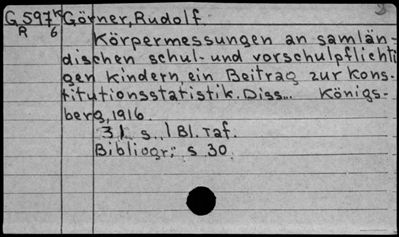 G 597 K Görner, Rudolf.
R 6
Körpermessungen an samlän=
dischen schul- und vorschulpflichti
gen kindern, ein Beitrag zur Kons-
titutionsstatistik. Diss... Königs-
berg, 1916.
31 s. 1 Bl. Taf.
Bibliogr.: s 30.